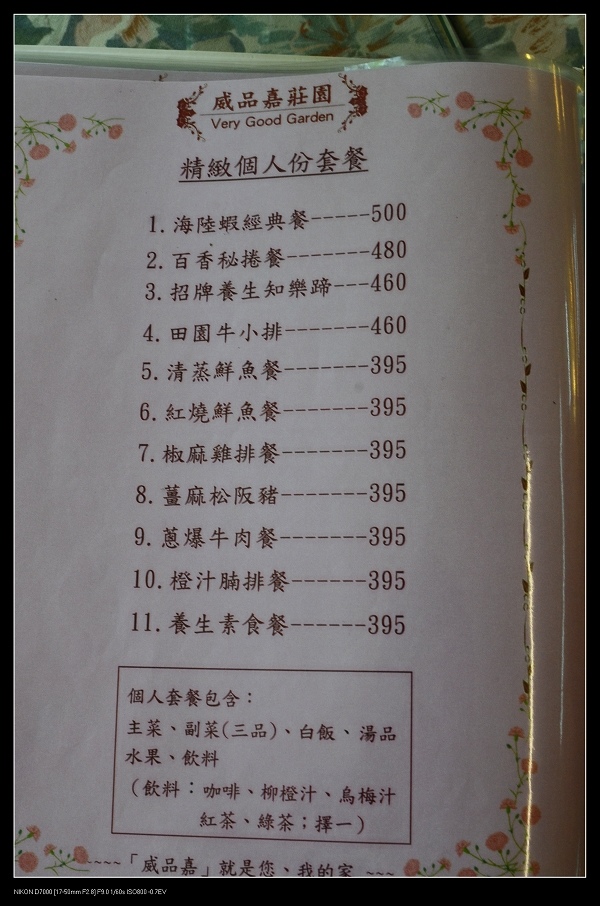 威品嘉莊園
Very Good Garden
精緻個人份套餐
1. 海陸蝦經典餐-----500
2. 百香秘捲餐-------480
3. 招牌養生知樂蹄---460
4. 田園牛小排-------460
5. 清蒸鮮魚餐-------395
6. 紅燒鮮魚餐-------395
7. 椒麻雞排餐-------395
8. 薑麻松阪豬-------395
9. 蔥爆牛肉餐-------395
10. 橙汁腩排餐------395
11. 養生素食餐------395
個人套餐包含：
主菜、副菜(三品)、白飯、湯品
水果、飲料
（飲料：咖啡、柳橙汁、烏梅汁
紅茶、綠茶；擇一）
~~~~「威品嘉」就是您、我的家 ~~~~
NIKON D7000 [17-50mm F2.8] F9.0 1/60s ISO800 -0.7EV